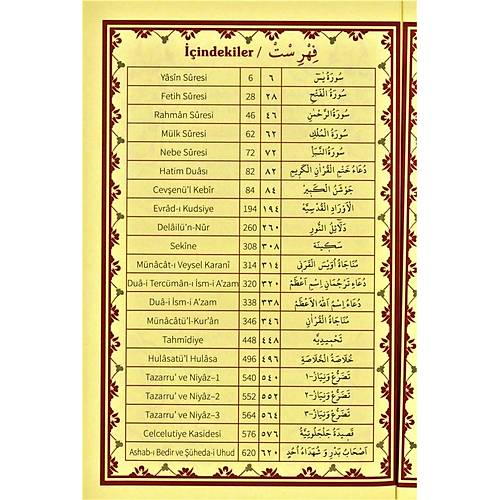 İçindekiler / فِهْرِسْتْ
Yâsîn Sûresi 6 ٦ سُورَةُ يٰسٓ
Fetih Sûresi 28 ٢٨ سُورَةُ الْفَتْحِ
Rahmân Sûresi 46 ٤٦ سُورَةُ الرَّحْمٰنِ
Mülk Sûresi 62 ٦٢ سُورَةُ الْمُلْكِ
Nebe Sûresi 72 ٧٢ سُورَةُ النَّبَأِ
Hatim Duâsı 82 ٨٢ دُعَاءُ خَتْمِ الْقُرْاٰنِ الْكَرِيمِ
Cevşenü'l Kebîr 84 ٨٤ جَوْشَنُ الْكَبِيرْ
Evrâd-ı Kudsiye 194 ١٩٤ اَلْاَوْرَادُ الْقُدْسِيَّه
Delâilü'n-Nûr 260 ٢٦٠ دَلَٓائِلُ النُّورِ
Sekîne 308 ٣٠٨ سَكِينَه
Münâcât-ı Veysel Karanî 314 ٣١٤ مُنَاجَاةُ اُوَيْسَ الْقَرَنِى
Duâ-i Tercümân-ı İsm-i A'zam 320 ٣٢٠ دُعَاءِ تَرْجُمَانِ اِسْمِ اَعْظَمْ
Duâ-i İsm-i A'zam 338 ٣٣٨ دُعَاءِ اِسْمِ اللّٰهِ الْاَعْظَمْ
Münâcâtü'l-Kur'ân 346 ٣٤٦ مُنَاجَاةُ الْقُرْاٰنِ
Tahmîdiye 448 ٤٤٨ تَحْمِيدِيَّه
Hulâsatü'l Hulâsa 496 ٤٩٦ خُلَاصَةُ الْخُلَاصَةِ
Tazarru' ve Niyâz–1 540 ٥٤٠ تَضَرُّعْ وَنِيَازْ-١
Tazarru' ve Niyâz–2 552 ٥٥٢ تَضَرُّعْ وَنِيَازْ-٢
Tazarru' ve Niyâz–3 564 ٥٦٤ تَضَرُّعْ وَنِيَازْ-٣
Celcelutiye Kasidesi 576 ٥٧٦ قَصِيدَةُ جَلْجَلُوتِيَّةُ
Ashab-ı Bedir ve Şüheda-i Uhud 620 ٦٢٠ اَصْحَابُ بَدْرِ وَ شُهَدَاءُ اُحُدٍ